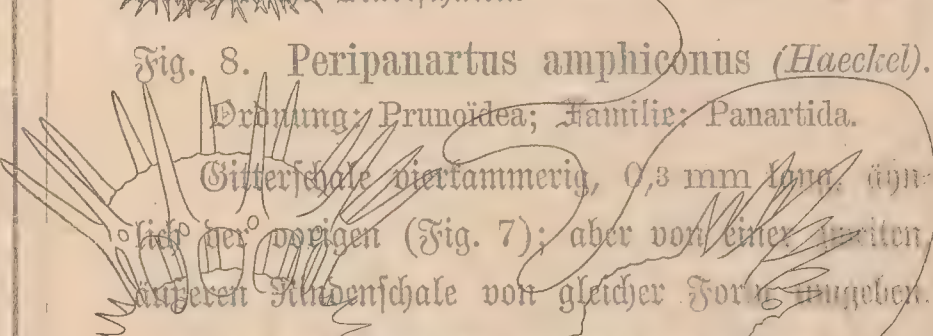 Fig. 8. Peripanartus amphiconus (Haeckel).
Ordnung: Prunoïdea; Familie: Panartida.
Gitterschale vierkammerig, 0,3 mm lang, ähn-
lich der vorigen (Fig. 7); aber von einer zweiten,
äußeren Rindenschale von gleicher Form umgeben.